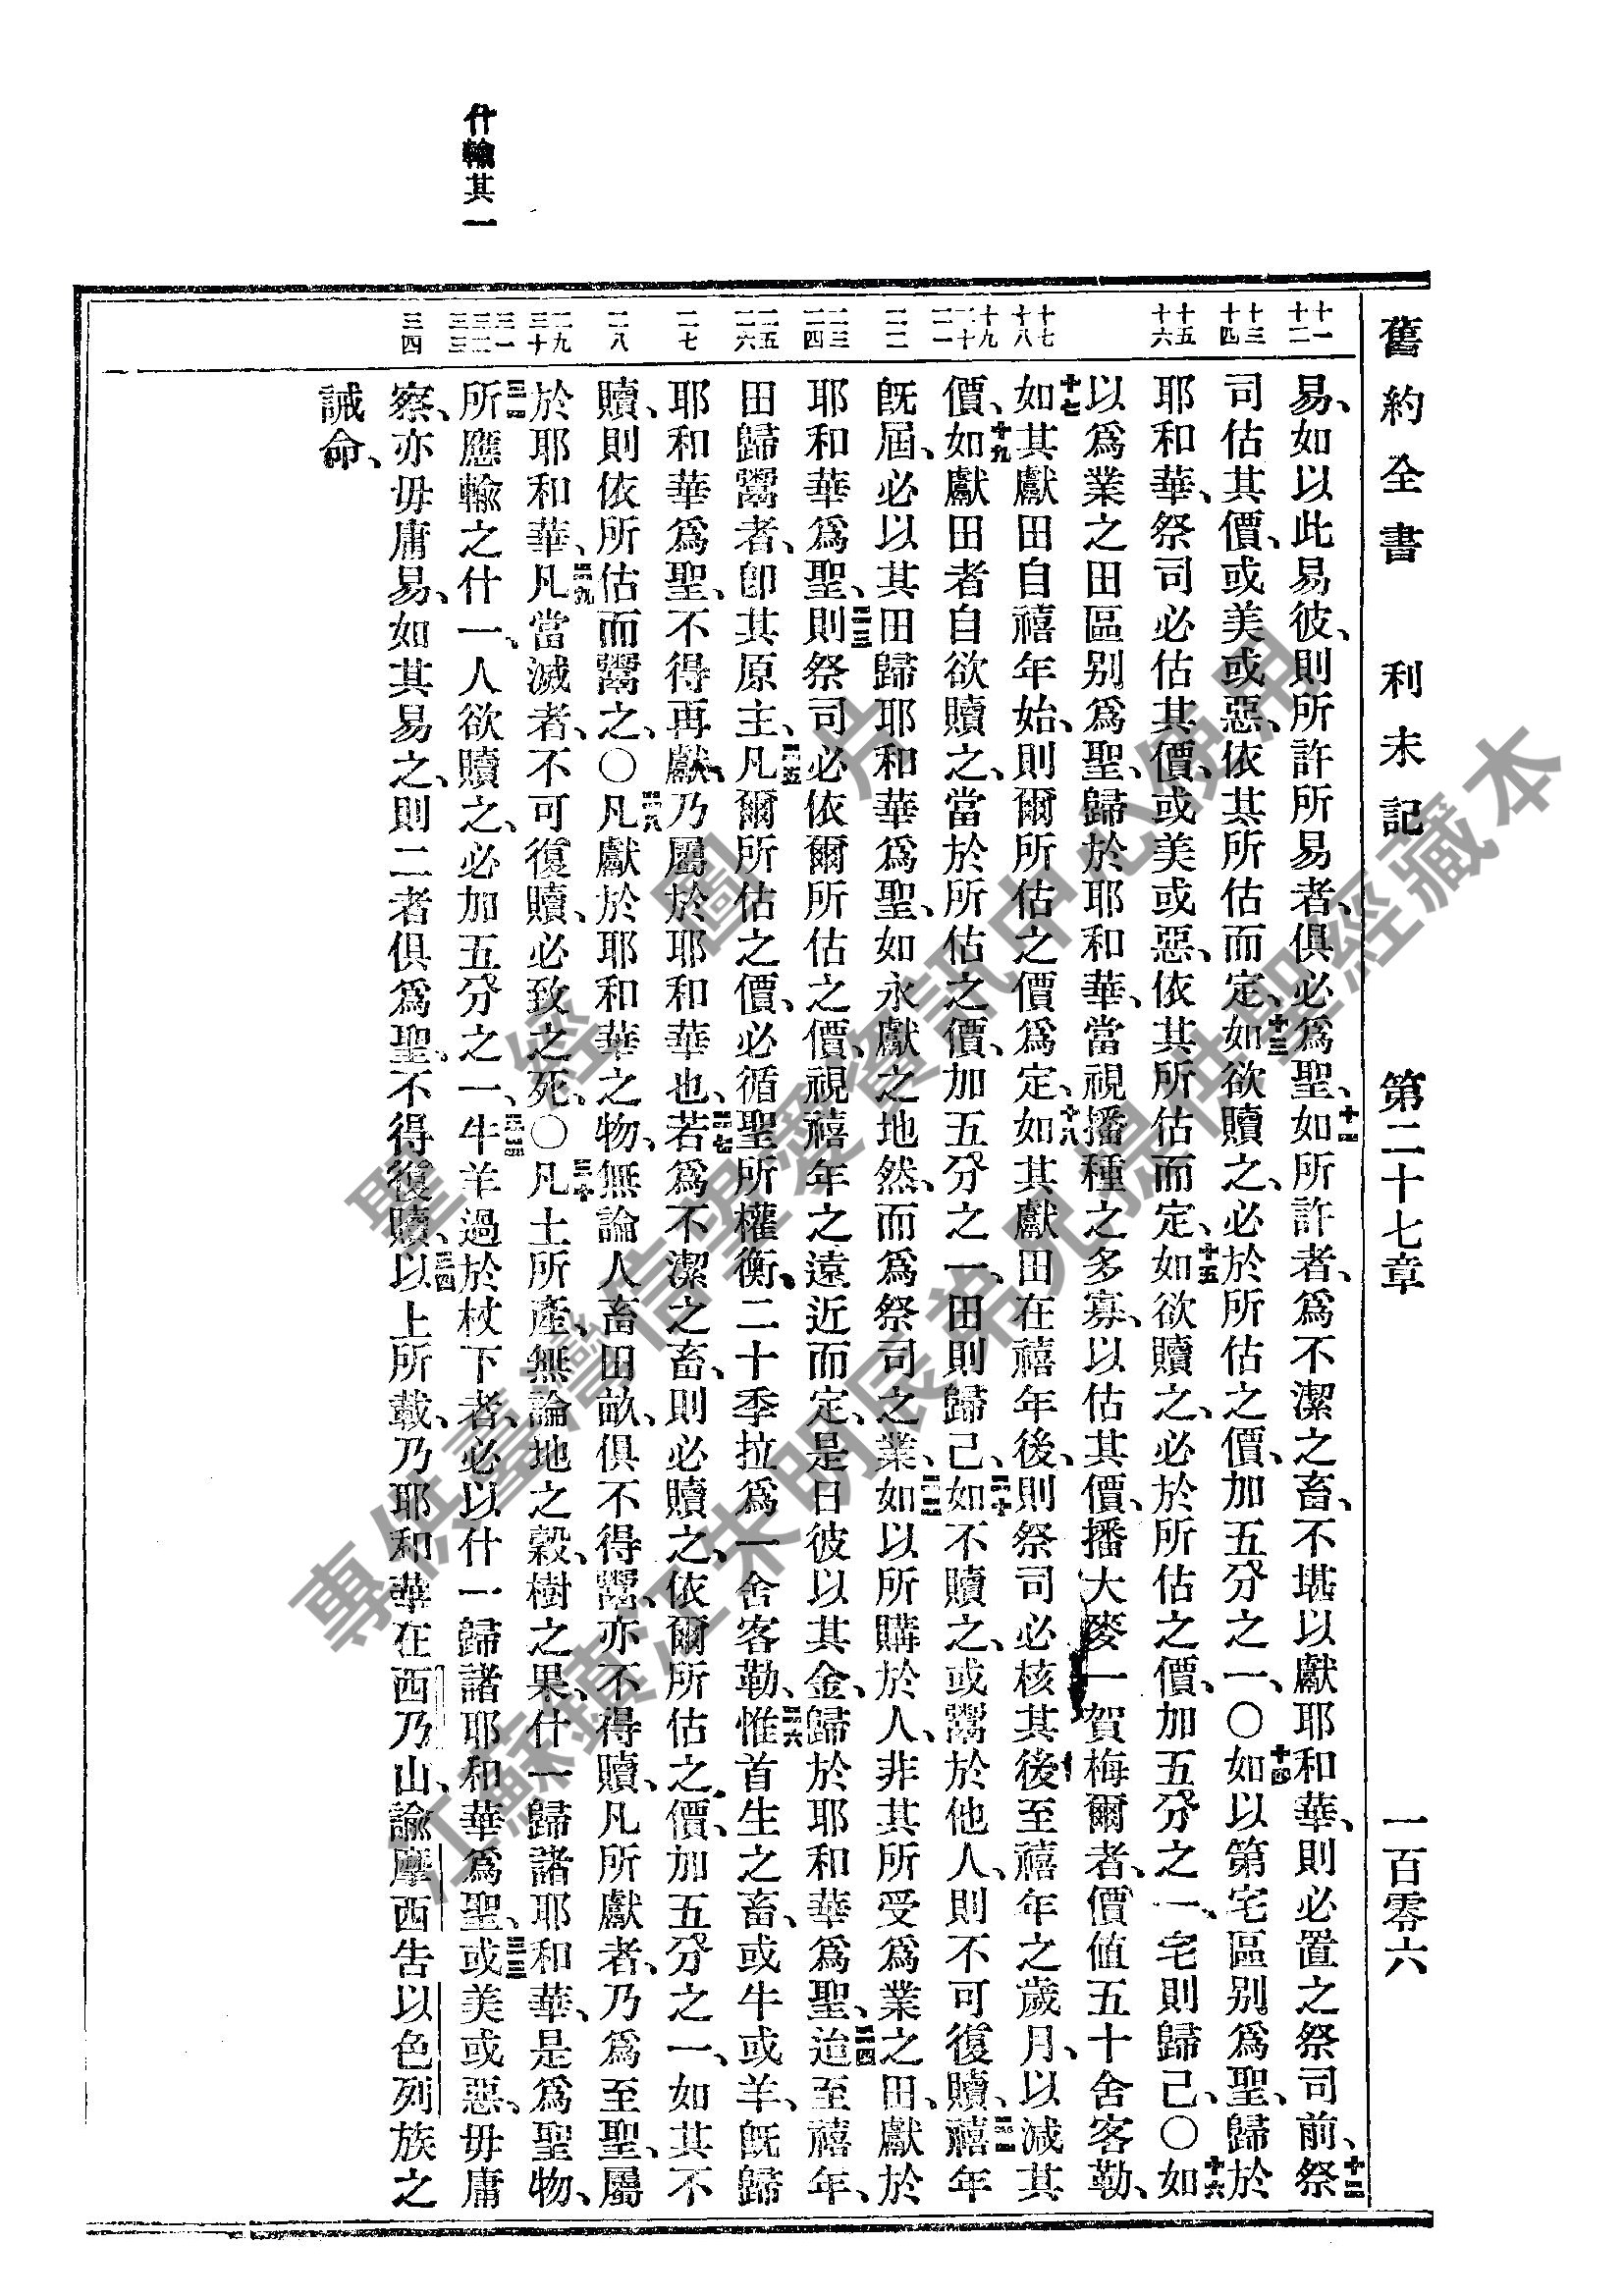 舊約全書 利未記 第二十七章 一百零六
什輸其一
十一 十二 十三 十四 十五 十六 十七 十八 十九 二十 二一 二二 二三 二四 二五 二六 二七 二八 二九 三十 三一 三二 三三 三四
易、如以此易彼、則所許所易者、俱必爲聖、十一如所許者、爲不潔之畜、不堪以獻耶和華、則必置之祭司前、十二祭
司估其價、或美或惡、依其所估而定、十三如欲贖之、必於所估之價、加五分之一、〇十四如以第宅區別爲聖、歸於
耶和華、祭司必估其價、或美或惡、依其所估而定、十五如欲贖之、必於所估之價、加五分之一、宅則歸己、〇十六如
以爲業之田區別爲聖、歸於耶和華、當視播種之多寡、以估其價、播大麥一賀梅爾者、價值五十舍客勒、
十七如其獻田自禧年始、則爾所估之價爲定、十八如其獻田在禧年後、則祭司必核其後至禧年之歲月、以減其
價、十九如獻田者自欲贖之、當於所估之價、加五分之一、田則歸己、二十如不贖之、或鬻於他人、則不可復贖、二一禧年
旣屆、必以其田歸耶和華爲聖、如永獻之地然、而爲祭司之業、二二如以所購於人、非其所受爲業之田、獻於
耶和華爲聖、二三則祭司必依爾所估之價、視禧年之遠近而定、是日彼以其金、歸於耶和華爲聖、二四迨至禧年、
田歸鬻者、卽其原主、二五凡爾所估之價、必循聖所權衡、二十季拉爲一舍客勒、二六惟首生之畜、或牛或羊、旣歸
耶和華爲聖、不得再獻、乃屬於耶和華也、二七若爲不潔之畜、則必贖之、依爾所估之價、加五分之一、如其不
贖、則依所估而鬻之、〇二八凡獻於耶和華之物、無論人畜田畝、俱不得鬻、亦不得贖、凡所獻者、乃爲至聖、屬
於耶和華、二九凡當滅者、不可復贖、必致之死、〇三十凡土所產、無論地之穀、樹之果、什一歸諸耶和華、是爲聖物、
三一所應輸之什一、人欲贖之、必加五分之一、三二牛羊過於杖下者、必以什一歸諸耶和華爲聖、三三或美或惡、毋庸
察、亦毋庸易、如其易之、則二者俱爲聖、不得復贖、三四以上所載、乃耶和華在西乃山、諭摩西吿以色列族之
誡命、
聖經圖片
專供臺灣信望愛資訊中心使用
江蘇鎮江朱明辰弟兄提供聖經藏本